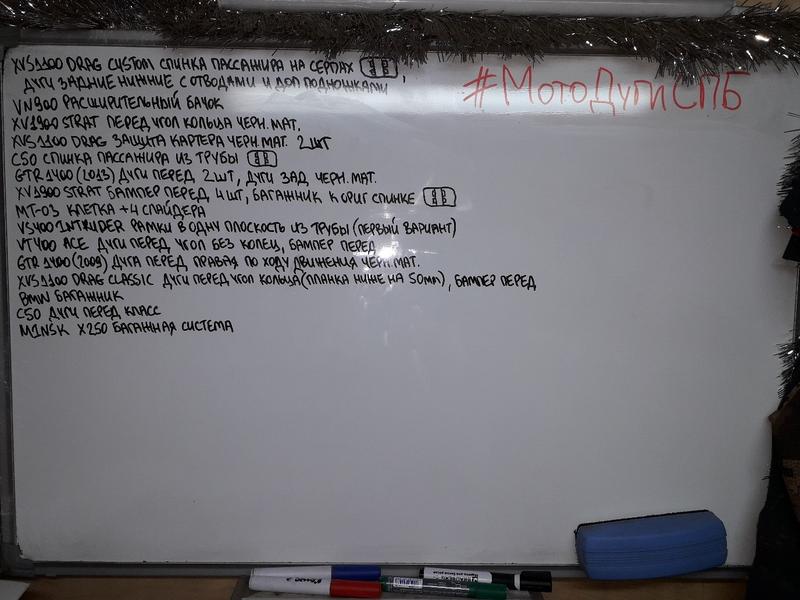 XVS1100 DRAG CUSTOM СПИНКА ПАССАЖИРА НА СЕРГАХ
ДУГИ ЗАДНИЕ НИЖНИЕ С ОТВОДАМИ И ДОП ПОДНОЖКАМИ
#МотоДугиСПБ
VN900 РАСШИРИТЕЛЬНЫЙ БАЧОК
XV1900 STRAT ПЕРЕД УГОЛ КОЛЬЦА ЧЕРН. МАТ.
XVS1100 DRAG ЗАЩИТА КАРТЕРА ЧЕРН. МАТ. 2 ШТ
C50 СПИНКА ПАССАЖИРА ИЗ ТРУБЫ
GTR 1400 (2013) ДУГИ ПЕРЕД 2 ШТ, ДУГИ ЗАД ЧЕРН. МАТ.
XV1900 STRAT БАМПЕР ПЕРЕД 4 ШТ, БАГАЖНИК К ОРИГ СПИНКЕ
MT-03 КЛЕТКА +4 СЛАЙДЕРА
VS400 INTRUDER РАМКИ В ОДНУ ПЛОСКОСТЬ ИЗ ТРУБЫ (ПЕРВЫЙ ВАРИАНТ)
VT400 ACE ДУГИ ПЕРЕД УГОЛ БЕЗ КОЛЕЦ, БАМПЕР ПЕРЕД
GTR 1400 (2009) ДУГА ПЕРЕД ПРАВАЯ ПО ХОДУ ДВИЖЕНИЯ ЧЕРН. МАТ.
XVS1100 DRAG CLASSIC ДУГИ ПЕРЕД УГОЛ КОЛЬЦА (ПЛАНКА НИЖЕ НА 50мм), БАМПЕР ПЕРЕД
BMW БАГАЖНИК
C50 ДУГИ ПЕРЕД КЛАСС
MINSK X250 БАГАЖНАЯ СИСТЕМА